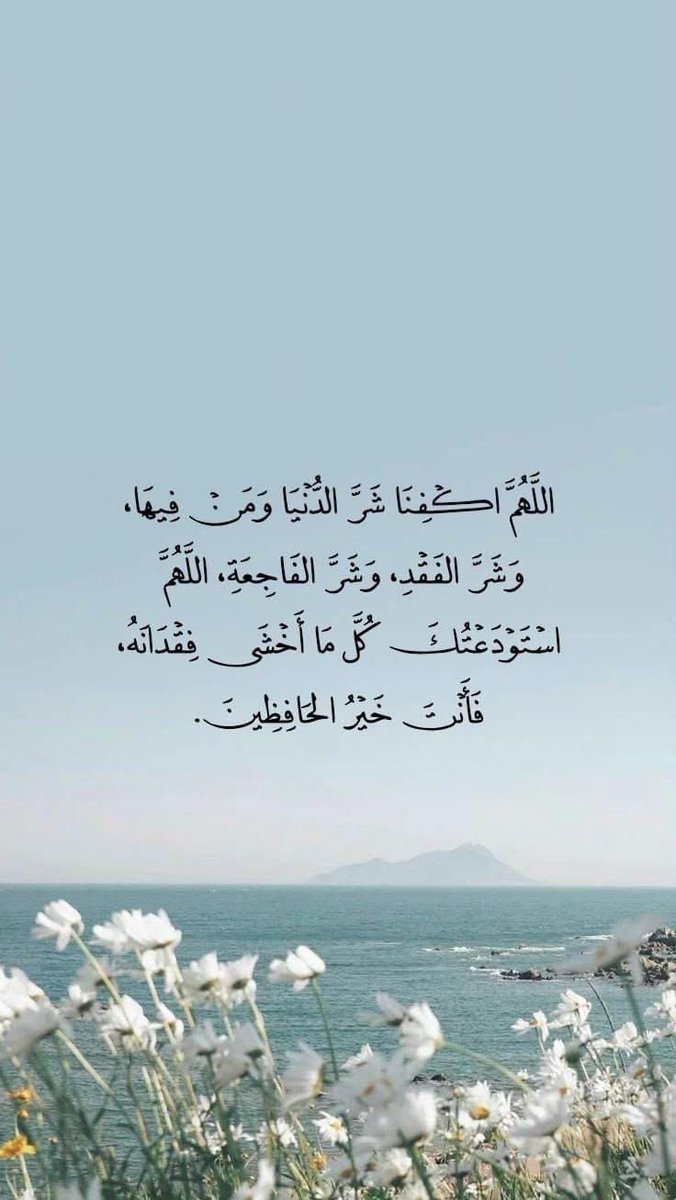 اللَّهُمَّ اكْفِنَا شَرَّ الدُّنْيَا وَمَنْ فِيهَا،
وَشَرَّ الفَقْدِ، وَشَرَّ الفَاجِعَةِ، اللَّهُمَّ
اسْتَوْدَعْتُكَ كُلَّ مَا أَخْشَى فِقْدَانَهُ،
فَأَنْتَ خَيْرُ الحَافِظِينَ.